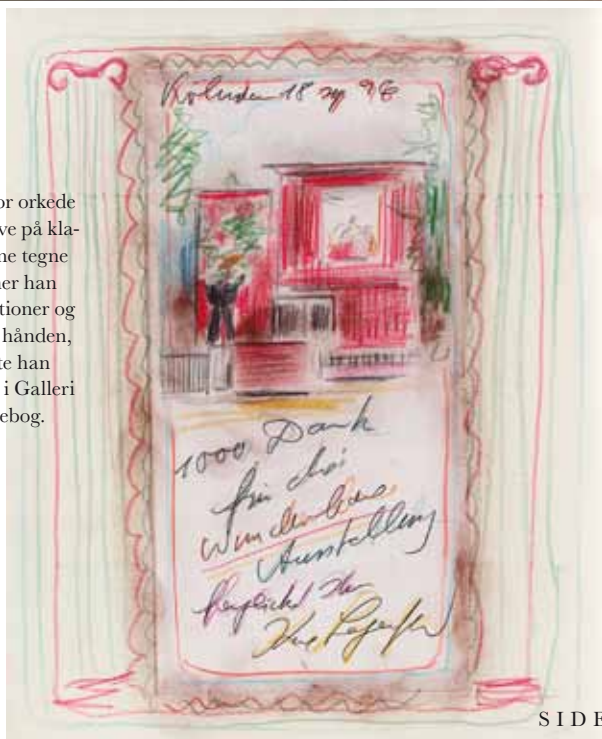 or orkede
ve på kla-
ne tegne
ner han
tioner og
hånden,
te han
i Galleri
ebog.
18 96
1000 Dank
für die
wunderbare
Ausstellung
SIDE